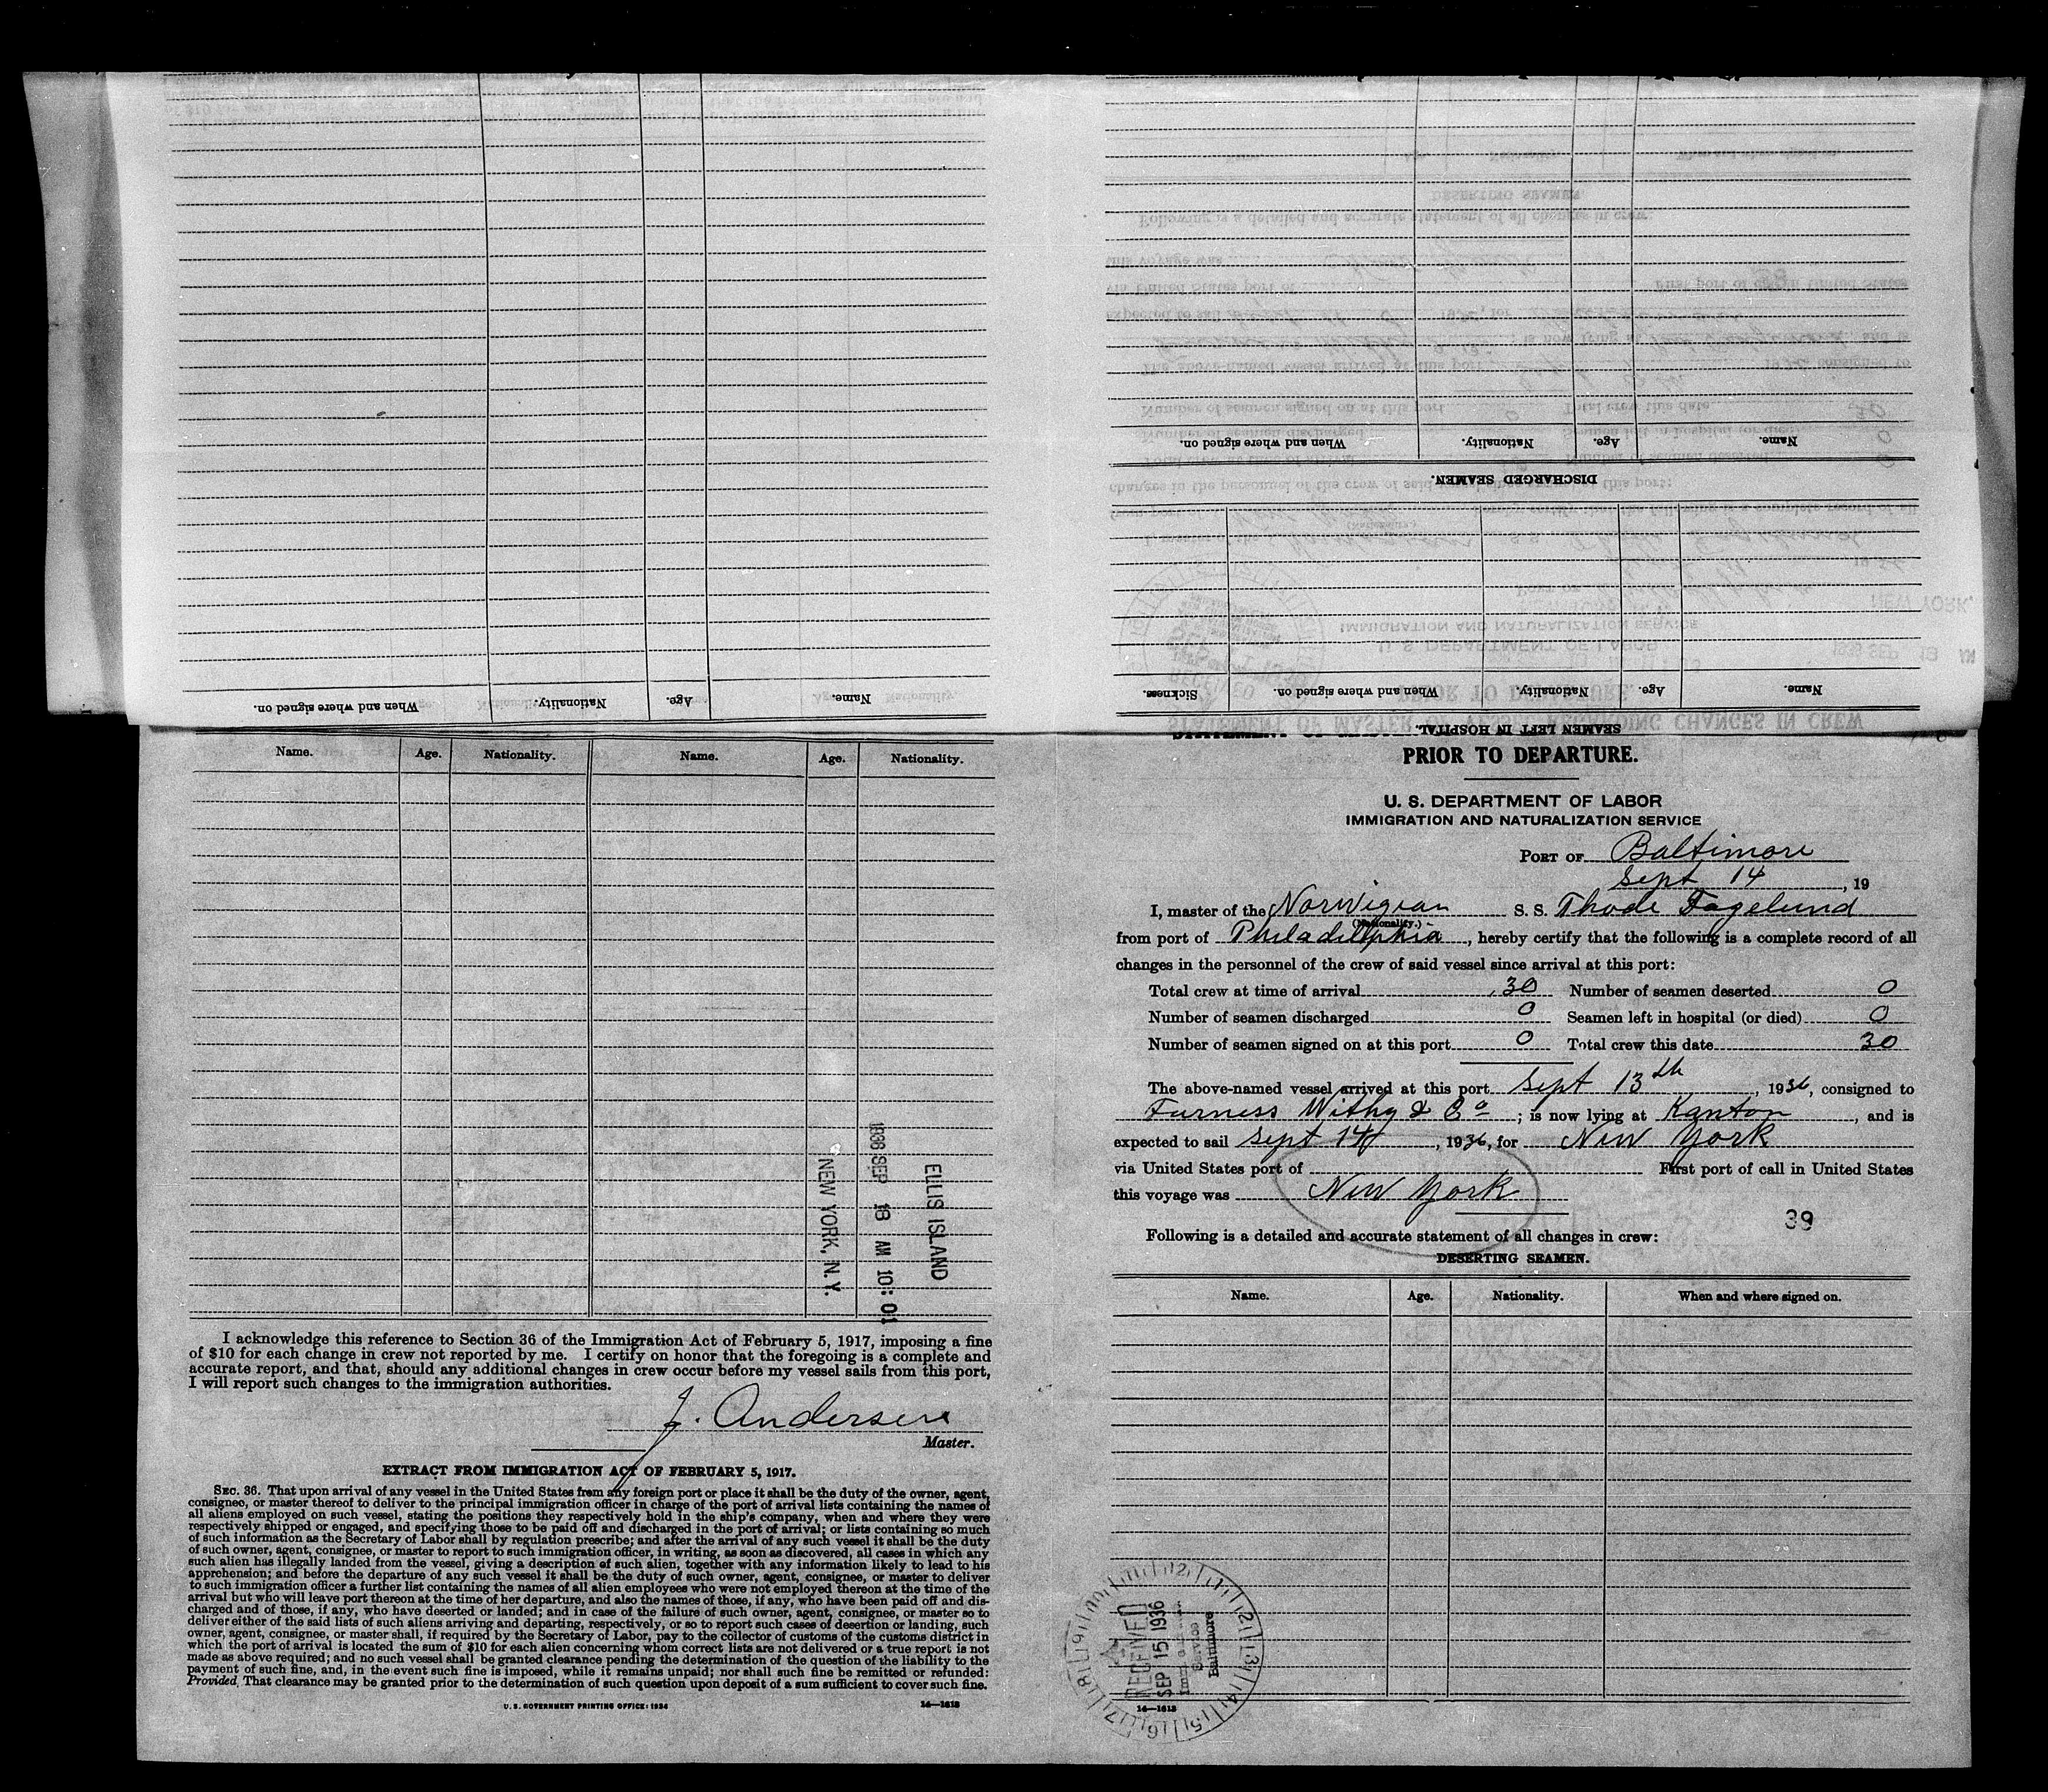 When and where signed on.
Nationality.
Age.
Name.
DISCHARGED SEAMEN.
Name.
Age.
Nationality.
When and where signed on.
Name.
Age.
Nationality.
When and where signed on.
Sickness.
SEAMEN LEFT IN HOSPITAL.
Name. Age. Nationality. Name. Age. Nationality.
ELLIS ISLAND
1936 SEP 18 AM 10:01
NEW YORK, N.Y.
I acknowledge this reference to Section 36 of the Immigration Act of February 5, 1917, imposing a fine
of $10 for each change in crew not reported by me. I certify on honor that the foregoing is a complete and
accurate report, and that, should any additional changes in crew occur before my vessel sails from this port,
I will report such changes to the immigration authorities.
J. Andersen
Master.
EXTRACT FROM IMMIGRATION ACT OF FEBRUARY 5, 1917.
SEC. 36. That upon arrival of any vessel in the United States from any foreign port or place it shall be the duty of the owner, agent,
consignee, or master thereof to deliver to the principal immigration officer in charge of the port of arrival lists containing the names of
all aliens employed on such vessel, stating the positions they respectively hold in the ship's company, when and where they were
respectively shipped or engaged, and specifying those to be paid off and discharged in the port of arrival; or lists containing so much
of such information as the Secretary of Labor shall by regulation prescribe; and after the arrival of any such vessel it shall be the duty
of such owner, agent, consignee, or master to report to such immigration officer, in writing, as soon as discovered, all cases in which any
such alien has illegally landed from the vessel, giving a description of such alien, together with any information likely to lead to his
apprehension; and before the departure of any such vessel it shall be the duty of such owner, agent, consignee, or master to deliver
to such immigration officer a further list containing the names of all alien employees who were not employed thereon at the time of the
arrival but who will leave port thereon at the time of her departure, and also the names of those, if any, who have been paid off and dis-
charged and of those, if any, who have deserted or landed; and in case of the failure of such owner, agent, consignee, or master so to
deliver either of the said lists of such aliens arriving and departing, respectively, or so to report such cases of desertion or landing, such
owner, agent, consignee, or master shall, if required by the Secretary of Labor, pay to the collector of customs of the customs district in
which the port of arrival is located the sum of $10 for each alien concerning whom correct lists are not delivered or a true report is not
made as above required; and no such vessel shall be granted clearance pending the determination of the question of the liability to the
payment of such fine, and, in the event such fine is imposed, while it remains unpaid; nor shall such fine be remitted or refunded:
Provided, That clearance may be granted prior to the determination of such question upon deposit of a sum sufficient to cover such fine.
U. S. GOVERNMENT PRINTING OFFICE: 1934 14—1618
PRIOR TO DEPARTURE.
U. S. DEPARTMENT OF LABOR
IMMIGRATION AND NATURALIZATION SERVICE
PORT OF Baltimore
Sept 14, 19
I, master of the Norwigian S. S. Thode Fagelund
(Nationality.)
from port of Philadellphia, hereby certify that the following is a complete record of all
changes in the personnel of the crew of said vessel since arrival at this port:
Total crew at time of arrival 30 Number of seamen deserted 0
Number of seamen discharged 0 Seamen left in hospital (or died) 0
Number of seamen signed on at this port 0 Total crew this date 30
The above-named vessel arrived at this port Sept 13th, 1936, consigned to
Furness Withy & Co; is now lying at Kanton, and is
expected to sail Sept 14, 1936, for New York
via United States port of First port of call in United States
this voyage was New York
39
Following is a detailed and accurate statement of all changes in crew:
DESERTING SEAMEN.
Name. Age. Nationality. When and where signed on.
RECEIVED
SEP 15 1936
Service
Baltimore
14—1618